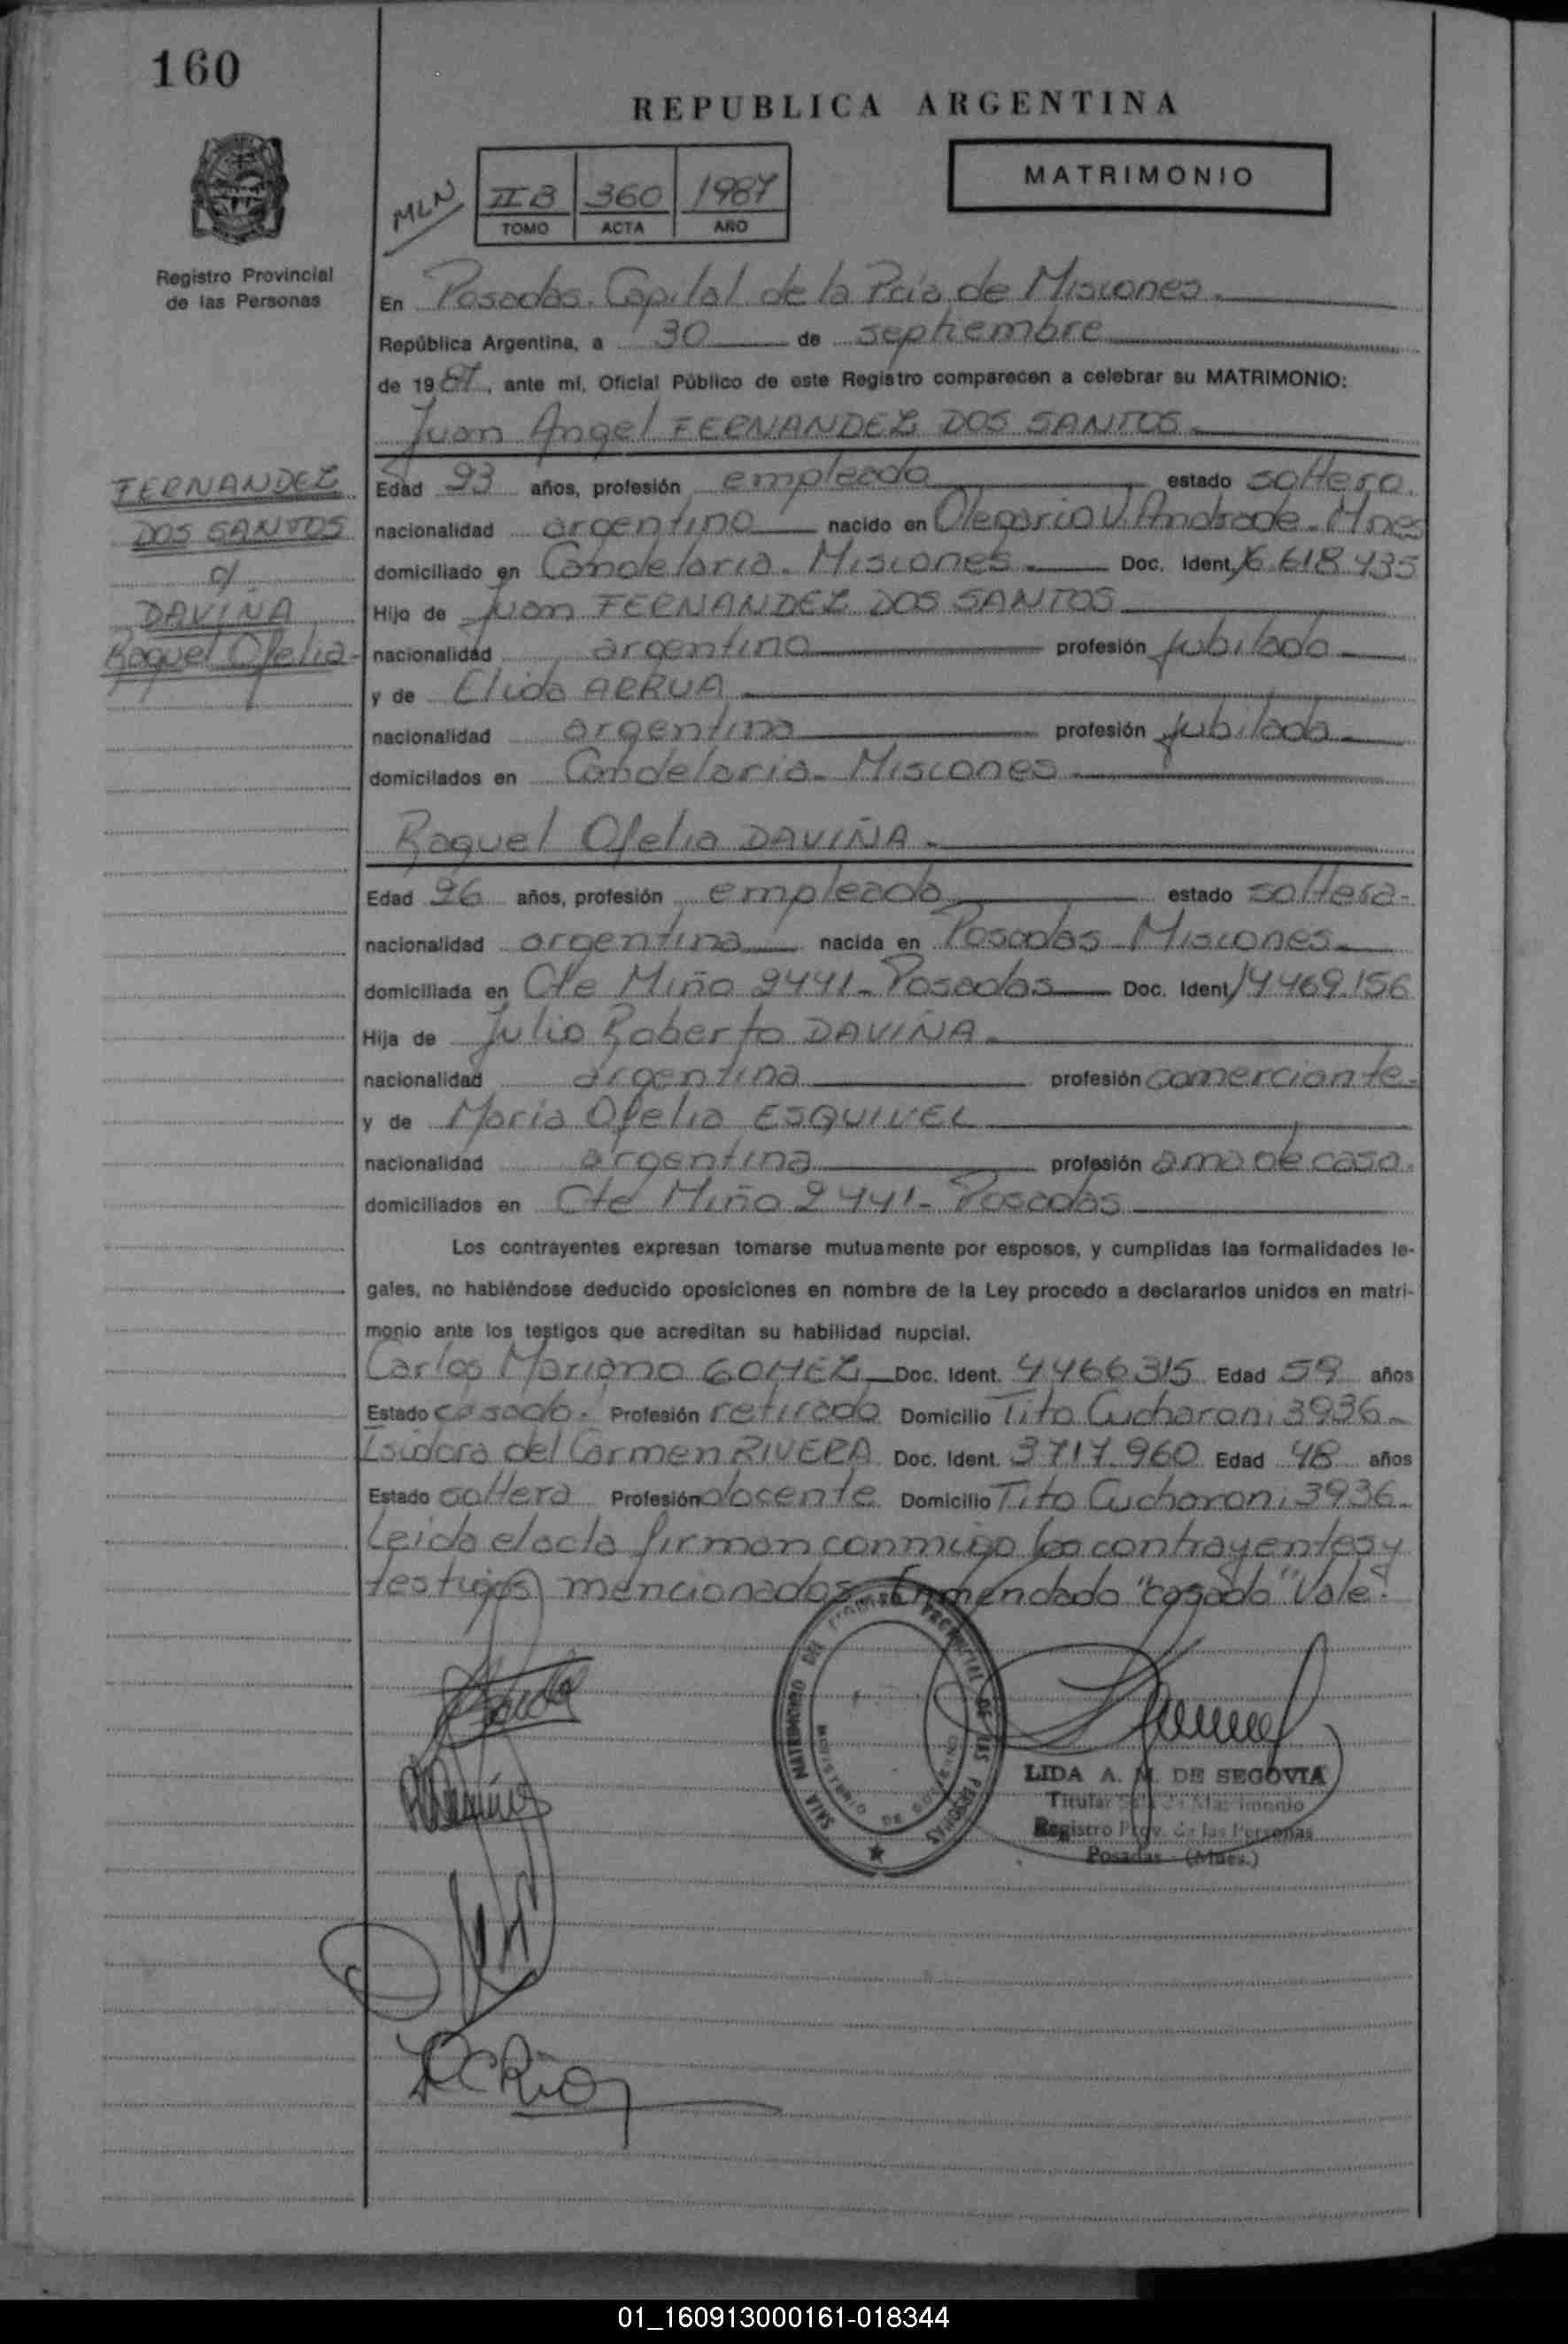 160
REPUBLICA ARGENTINA
MATRIMONIO
MLN
II B 360 1987
TOMO ACTA AÑO
Registro Provincial
de las Personas
En Posadas. Capital de la Pcia de Misiones.
República Argentina, a 30 de septiembre
de 1987, ante mí, Oficial Público de este Registro comparecen a celebrar su MATRIMONIO:
Juan Angel FERNANDEZ DOS SANTOS
FERNANDEZ
DOS SANTOS
c/
DAVIÑA
Raquel Ofelia
Edad 23 años, profesión empleado estado soltero.
nacionalidad argentino nacido en Olegario V. Andrade. Mnes
domiciliado en Candelaria. Misiones Doc. Ident. 16.618.435
Hijo de Juan FERNANDEZ DOS SANTOS
nacionalidad argentina profesión jubilado
y de Elida ARRUA
nacionalidad argentina profesión jubilada
domicilados en Candelaria. Misiones
Raquel Ofelia DAVIÑA.
Edad 26 años, profesión empleada estado soltera.
nacionalidad argentina nacida en Posadas Misiones
domiciliada en Cte Miño 2441. Posadas Doc. Ident. 14469.156
Hija de Julio Roberto DAVIÑA.
nacionalidad argentina profesión comerciante.
y de Maria Ofelia ESQUIVEL
nacionalidad argentina profesión ama de casa.
domiciliados en Cte Miño 2441. Posadas
Los contrayentes expresan tomarse mutuamente por esposos, y cumplidas las formalidades le-
gales, no habiéndose deducido oposiciones en nombre de la Ley procedo a declararlos unidos en matri-
monio ante los testigos que acreditan su habilidad nupcial.
Carlos Mariano GOMEZ Doc. Ident. 4466315 Edad 59 años
Estado casado. Profesión retirado Domicilio Tito Cucharoni 3936.
Isidora del Carmen RIVERA Doc. Ident. 3717.960 Edad 48 años
Estado soltera Profesión docente Domicilio Tito Cucharoni 3936.
Leida el acta firman conmigo los contrayentes y
testigos mencionados. Enmendado "casado" Vale.
SALA MATRIMONIO DEL REGISTRO PROVINCIAL DE LAS PERSONAS
MINISTERIO DE GOBIERNO
LIDA A. M. DE SEGOVIA
Titular Sala de Matrimonio
Registro Prov. de las Personas
Posadas - (Mnes.)
01_160913000161-018344